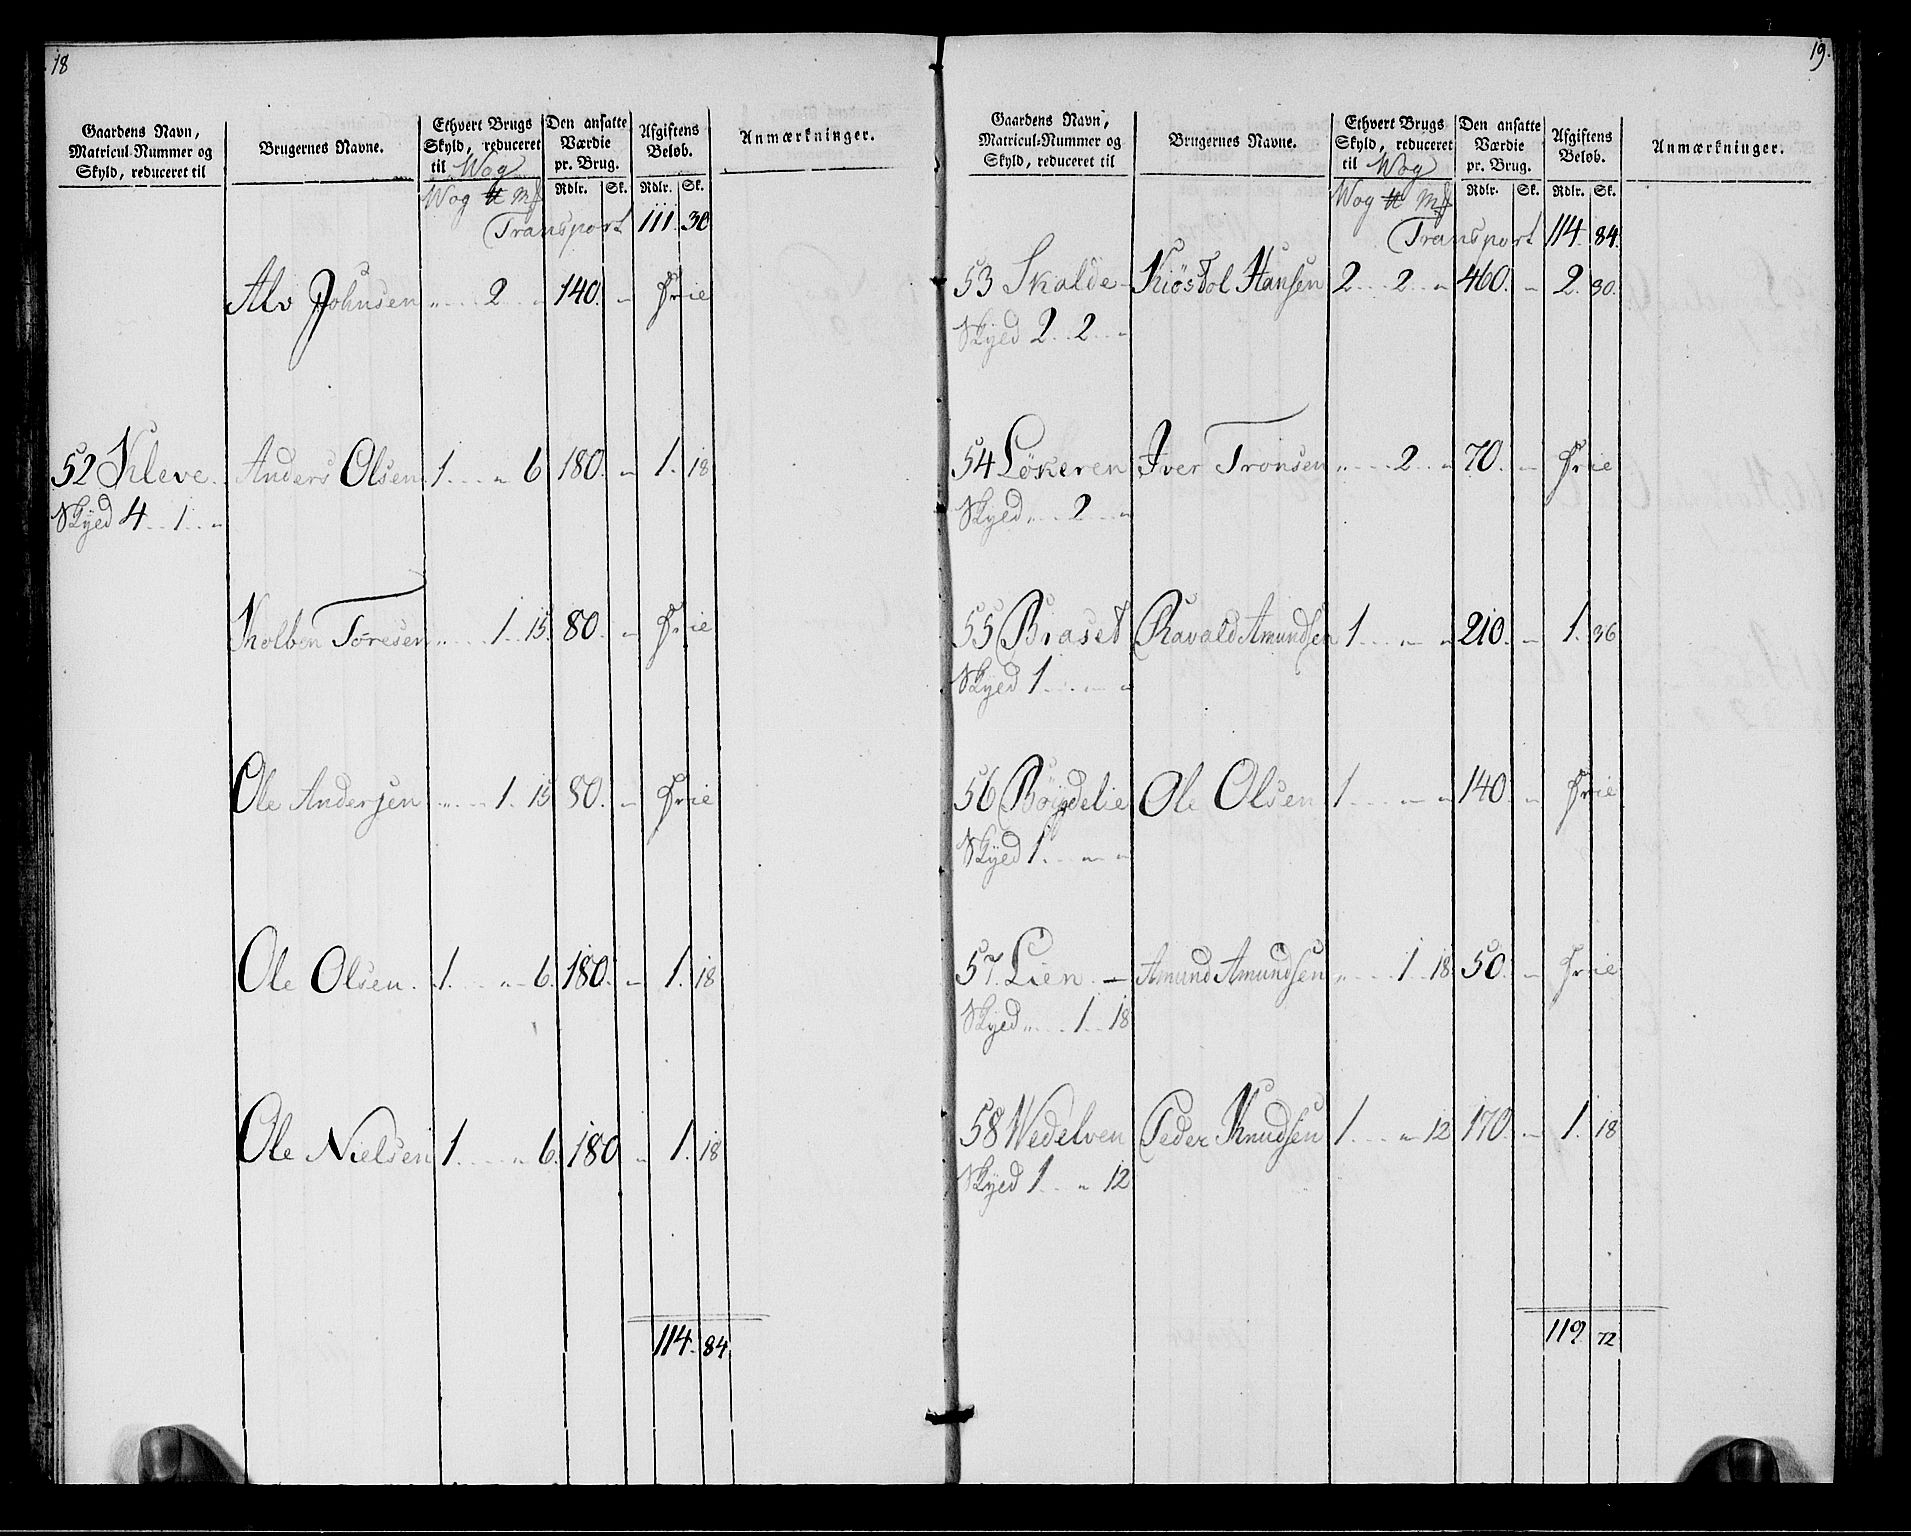 18
Gaardens Navn, Matricul-Nummer og Skyld, reduceret til
Brugernes Navne.
Ethvert Brugs Skyld, reduceret til Wog
Den ansatte Værdie pr. Brug.
Afgiftens Beløb.
Anmærkninger.
Wog ℔ Mk Rdlr. Sk. Rdlr. Sk.
Transport 111. 30
Alv Johnsen " 2 " 140. " Frie
52 Kleve. Anders Olsen 1. " 6 180. " 1. 18
Skyld 4 .. 1 .. "
Tholben Toresen " 1. 15. 80. " Frie
Ole Andersen " 1. 15 80. " Frie
Ole Olsen. 1. " 6. 180. " 1. 18
Ole Nielsen 1. " 6. 180 " 1. 18
114. 84.
19.
Gaardens Navn, Matricul-Nummer og Skyld, reduceret til
Brugernes Navne.
Ethvert Brugs Skyld, reduceret til Wog
Den ansatte Værdie pr. Brug.
Afgiftens Beløb.
Anmærkninger.
Wog ℔ Mk Rdlr. Sk. Rdlr. Sk.
Transport 114. 84.
53 Skalde Kiöstol Hansen 2 .. 2 .. " 460. " 2. 30.
Skyld 2 .. 2 .. "
54 Lökeren Iver Tronsen " 2 .. " 70. " Frie
Skyld " 2 .. "
55 Braset Ravald Amundsen 1 .. " " 210. " 1. 36
Skyld 1 .. " "
56 Böigdelie Ole Olsen 1 .. " " 140. " Frie
Skyld 1. " "
57. Lien. — Amund Amundsen " 1 .. 18 50. " Frie
Skyld " 1 .. 18
58 Wedelven Peder Knudsen 1. " 12 170. " 1. 18
Skyld 1. " 12
119. 72